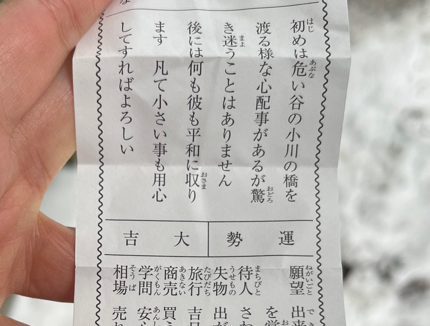 初めは危い谷の小川の橋を
渡る様な心配事があるが驚
き迷うことはありません
後には何も彼も平和に収り
ます 凡て小さい事も用心
してすればよろしい
運勢
大吉
願望 出来
待人 さわ
失物 出が
旅行 吉
商売 買
学問 安
相場 売